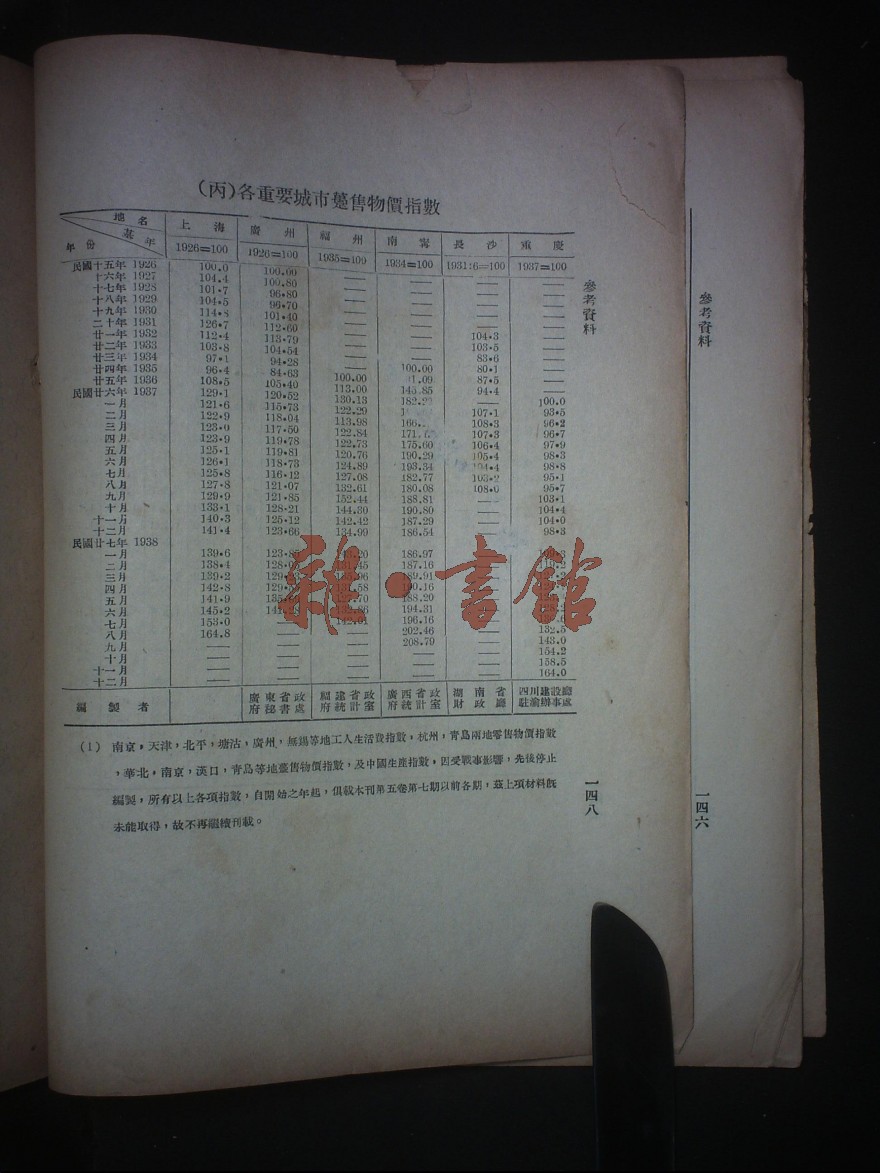 (丙)各重要城市躉售物價指數
地名 上海 廣州 福州 南寧 長沙 重慶
年份 基年 1926=100 1926=100 1935=100 1934=100 1931:6=100 1937=100
民國十五年 1926 100.0 100.00 — — — —
十六年 1927 104.4 100.80 — — — —
十七年 1928 101.7 96.80 — — — —
十八年 1929 104.5 96.70 — — — —
十九年 1930 114.8 101.40 — — — —
二十年 1931 126.7 112.60 — — 104.3 —
廿一年 1932 112.4 113.79 — — 103.5 —
廿二年 1933 103.8 104.54 — — 83.6 —
廿三年 1934 97.1 94.28 — 100.00 80.1 —
廿四年 1935 96.4 84.63 100.00 87.5 —
廿五年 1936 108.5 105.40 113.00 145.85 94.4 —
民國廿六年 1937 129.1 120.52 130.13 — 100.0
一月 121.6 115.73 122.29 107.1 93.5
二月 122.9 118.04 113.98 108.3 96.2
三月 123.0 117.50 122.84 107.3 96.7
四月 123.9 119.78 122.73 175.60 106.4 97.9
五月 125.1 119.81 120.76 190.29 105.4 98.3
六月 126.1 118.73 124.89 193.34 104.4 98.8
七月 125.8 116.12 127.08 182.77 103.2 95.1
八月 127.8 121.07 132.61 180.08 108.0 95.7
九月 129.9 121.85 152.44 188.81 — 103.1
十月 133.1 128.21 144.30 190.80 — 104.4
十一月 140.3 125.12 142.42 187.29 — 104.0
十二月 141.4 123.66 134.99 186.54 — 98.3
民國廿七年 1938
一月 139.6 186.97 —
二月 138.4 187.16 —
三月 139.2 189.91
四月 142.8 190.16
五月 141.9 188.20
六月 145.2 194.31
七月 153.0 — 196.16 —
八月 164.8 — — 202.46 — 132.5
九月 — — — 208.79 — 143.0
十月 — — — — — 154.2
十一月 — — — — — 158.5
十二月 — — — — — 164.0
編製者 廣東省政府秘書處 福建省政府統計室 廣西省政府統計室 湖南省財政廳 四川建設廳駐渝辦事處
(1) 南京，天津，北平，塘沽，廣州，無錫等地工人生活費指數，杭州，青島兩地零售物價指數
，華北，南京，漢口，青島等地躉售物價指數，及中國生產指數，因受戰事影響，先後停止
編製，所有以上各項指數，自開始之年起，俱載本刊第五卷第七期以前各期，茲上項材料旣
未能取得，故不再繼續刊載。
參考資料
一四八
參考資料
一四六
雜·書館